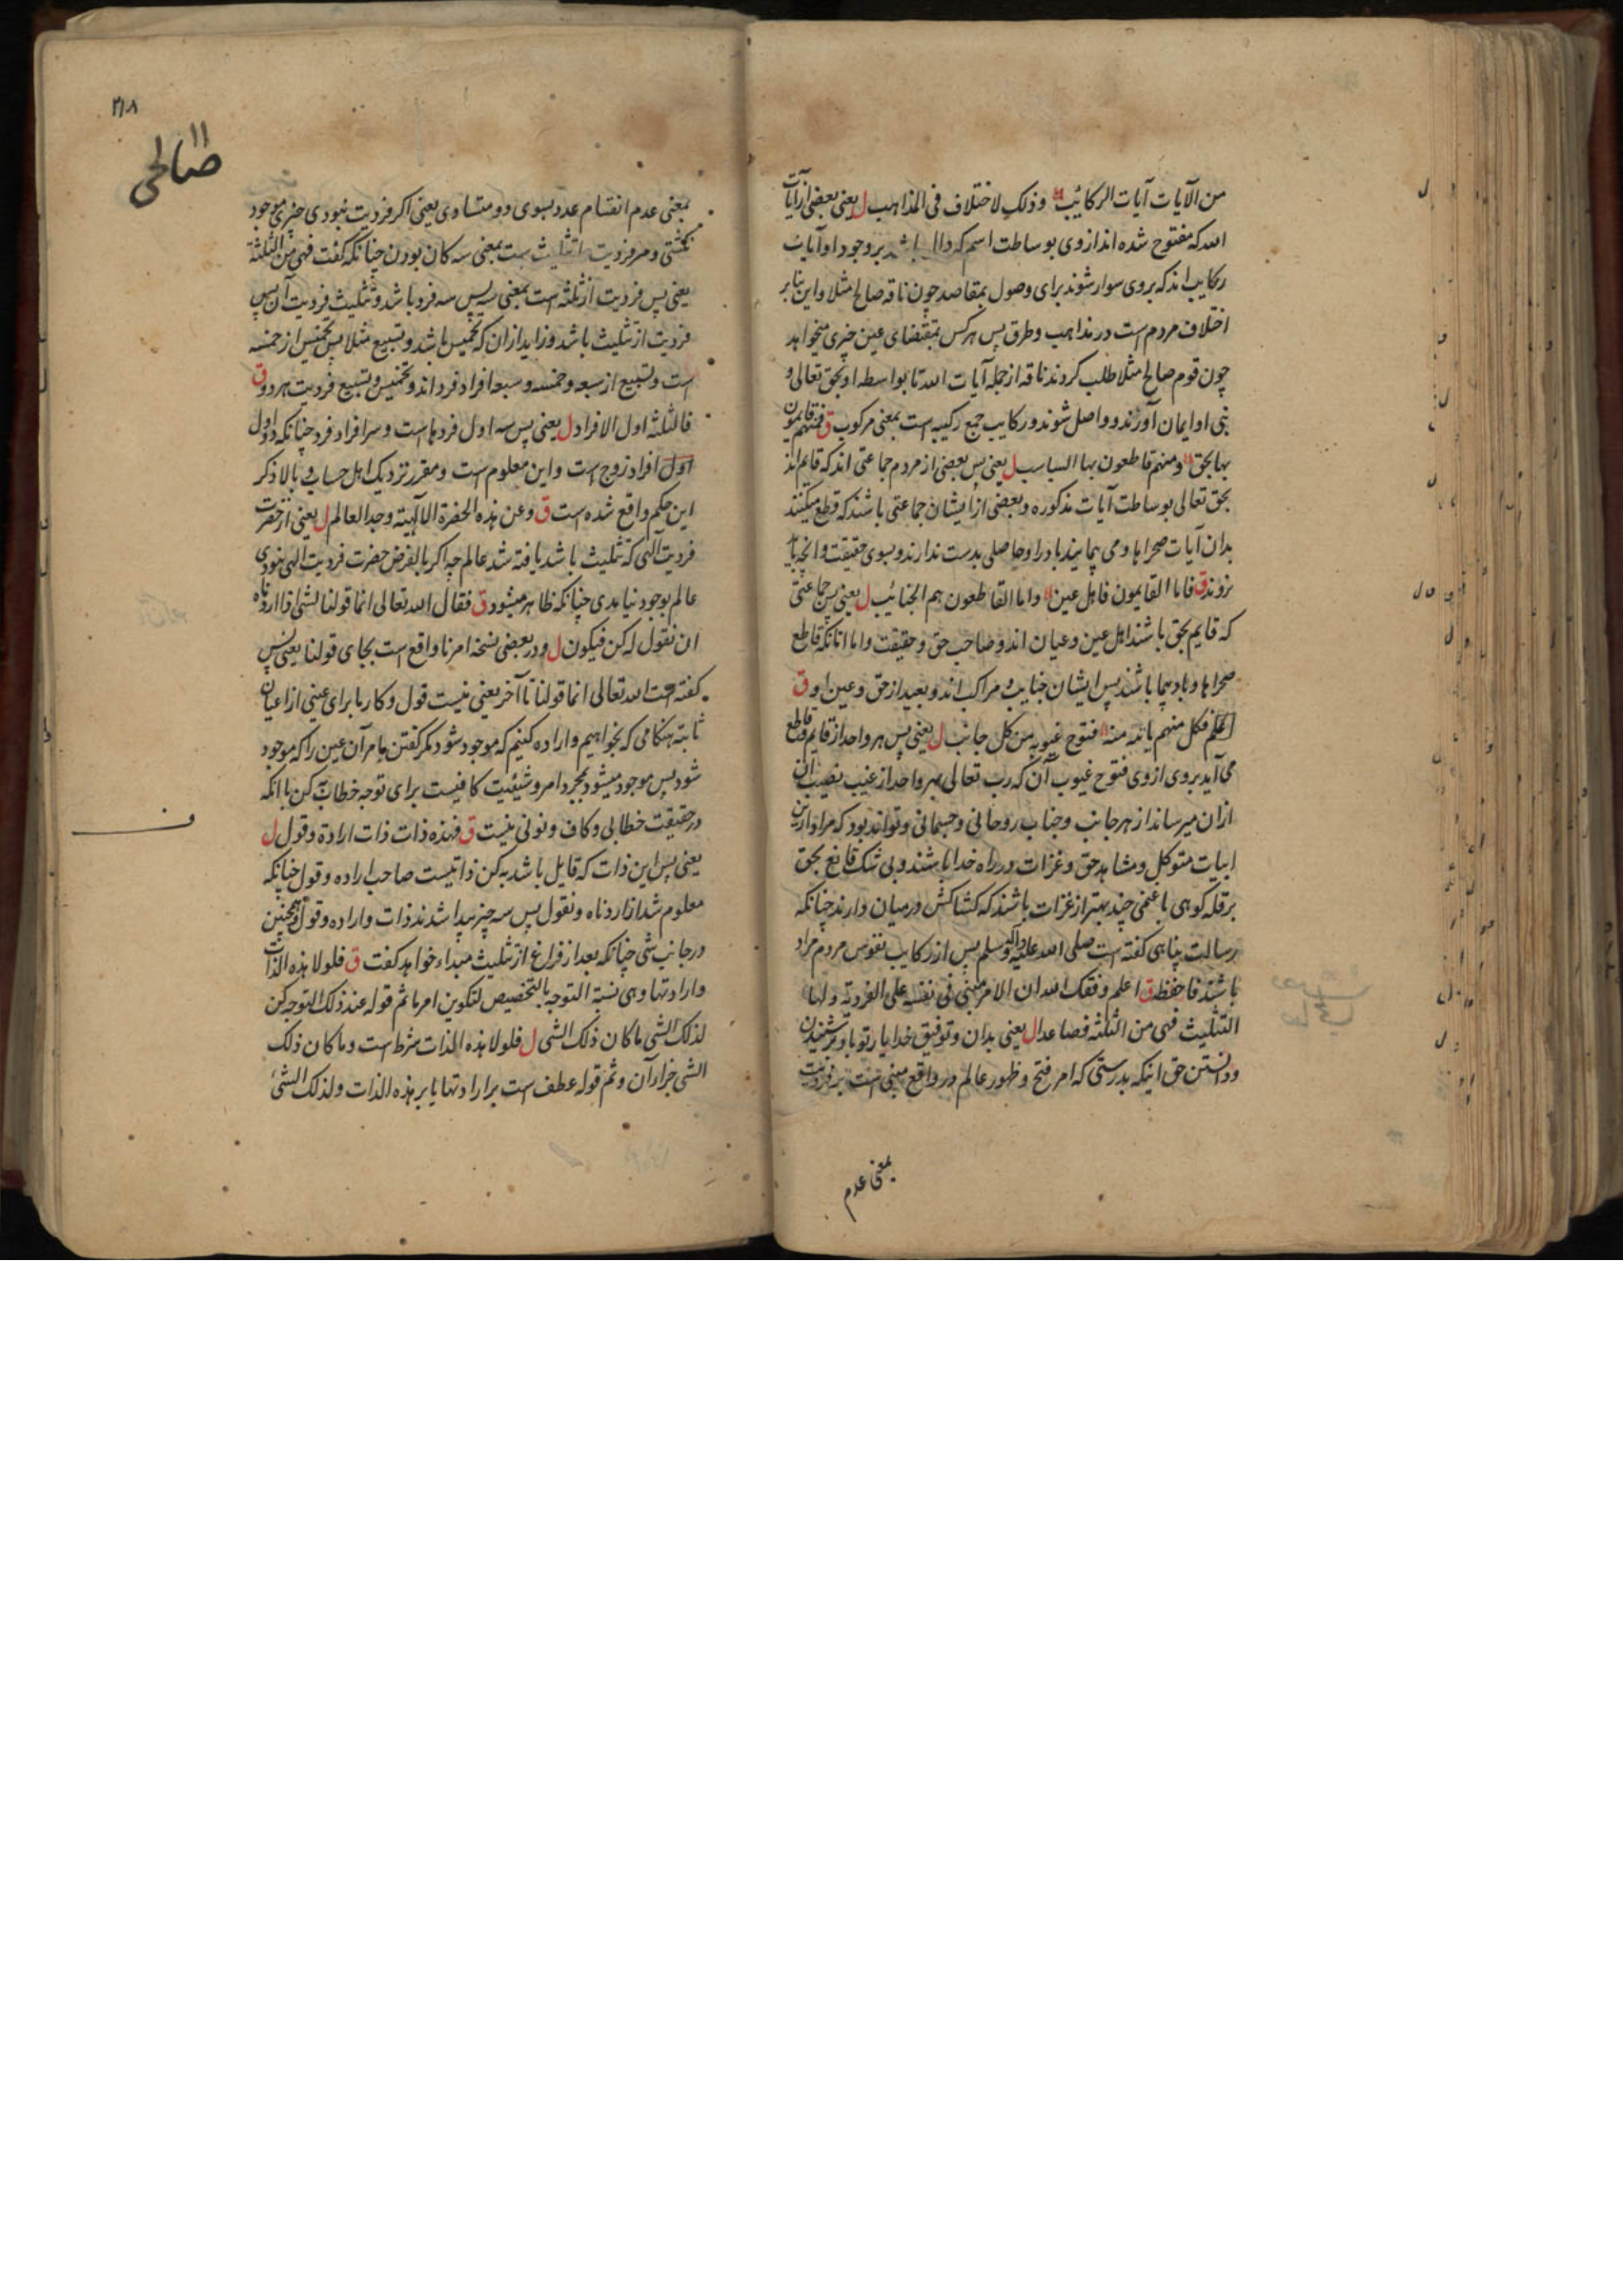 من الآیات آیات الرکائب وذلک لاختلاف فی المذاهب ل یعنی بعضی از آیات
الله که مفتوح شده اند از وی بوساطت اسم که دال باشد بر وجود او آیات
رکایب اند که بر وی سوار شوند برای وصول بمقاصد چون ناقه صالح مثلا واین بنابر
اختلاف مردم است در مذاهب وطرق پس هرکس بمقتضای عین چیزی میخواهد
چون قوم صالح مثلا طلب کردند ناقه از جمله آیات الله تا بواسطه او بحق تعالی و
نبی او ایمان آورند وواصل شوند ورکایب جمع رکیبه است بمعنی مرکوب ق فمنهم قایمون
بها بحق ومنهم قاطعون بها السباسب ل یعنی پس بعضی از مردم جماعتی اند که قایم اند
بحق تعالی بوساطت آیات مذکوره وبعضی از ایشان جماعتی باشند که قطع میکنند
بدان آیات صحراها ومی پیمایند باد را وحاصلی بدست ندارند وبسوی حقیقت وانچه
نروند ق فاما القایمون فاهل عین واما القاطعون هم الجنائب ل یعنی پس جماعتی
که قایم بحق باشند اهل عین وعیان اند وصاحب حق وحقیقت واما انانکه قاطع
صحراها وباد پیما باشند پس ایشان جنایب مراکب اند وبعید از حق وعین او ق
فکل منهم یاتیه منه فتوح غیوبه من کل جانب ل یعنی پس هر واحد از قایم وقاطع
می آید بر وی از وی فتوح غیوب آن که رب تعالی بهر واحد از غیب نصیب ان
ازان میرساند از هر جانب وجناب روحانی وجسمانی وتواند بود که مراد ازین
ابیات متوکل ومشاهد حق وغزات در راه خدا باشند وبی شک قانع بحق
بر قله کوهی با غنمی چند بهتر از غزات باشند که کشاکش در میان دارند چنانکه
رسالت پناهی گفته است صلی الله علیه وآله وسلم پس از رکایب نفوس مردم مراد
باشند فاحفظ ق اعلم وفقک الله ان الامر مبنی فی نفسه علی الفردیة ولها
التثلیث فهی من الثلثة فصاعدا ل یعنی بدان وتوفیق خدا یار تو باد در شنیدن
ودانستن حق اینکه بدرستی که امر فتح وظهور عالم در واقع مبنی است بر فردیت
بمعنی عدم
۲۱۸
صالحی
بمعنی عدم انقسام عدد بسوی دو متساوی یعنی اگر فردیت نبودی چیزی موجود
نگشتی ومر فردیت را تثلیث است بمعنی سه گان بودن چنانکه گفت فهی من الثلثة
یعنی پس فردیت از ثلثه است بمعنی سه پس سه فرد باشد وتثلیث فردیت آن پس
فردیت از تثلیث باشد وزاید ازان که تخمیس باشد وتسبیع مثلا پس تخمیس از خمسه
است وتسبیع از سبعه وخمسه وسبعه افراد فرد اند وتخمیس وتسبیع فردیت هر دو ق
فالثلثة اول الافراد ل یعنی پس سه اول فردها است وسر افراد فرد چنانکه دو اول
اول افراد زوج است واین معلوم است ومقرر نزدیک اهل حساب وبالا ذکر
این حکم واقع شده است ق وعن هذه الحضرة الالهیة وجد العالم ل یعنی از حضرت
فردیت الهی که تثلیث باشد یافته شد عالم چه اگر بالفرض حضرت فردیت الهی نبودی
عالم بوجود نیامدی چنانکه ظاهر میشود ق فقال الله تعالی انما قولنا لشئ اذا اردناه
ان نقول له کن فیکون ل ودر بعضی نسخه امرنا واقع است بجای قولنا یعنی پس
گفته است الله تعالی انما قولنا تا آخر یعنی نیست قول وکار ما برای عینی از اعیان
ثابته هنگامی که بخواهیم واراده کنیم که موجود شود مگر گفتن ما مر آن عین را که موجود
شو پس موجود میشود بمجرد امر وشیئیت کافیست برای توجه خطاب کن با انکه
در حقیقت خطابی وکاف ونونی نیست ق فهذه ذات ذات ارادة وقول ل
یعنی پس این ذات که قایل باشد به کن ذاتیست صاحب اراده وقول چنانکه
معلوم شد از اردناه ونقول پس سه چیز پیدا شدند ذات واراده وقول وهمچنین
در جانب شئ چنانکه بعد از فراغ از تثلیث مبداء خواهد گفت ق فلولا هذه الذات
وارادتها وهی نسبة التوجه بالتخصیص لتکوین امر ما ثم قوله عند ذلک التوجه کن
لذلک الشئ ما کان ذلک الشئ ل فلولا هذه الذات شرط است وما کان ذلک
الشئ جزاء آن وثم قوله عطف است بر ارادتها یا بر هذه الذات ولذلک الشئ